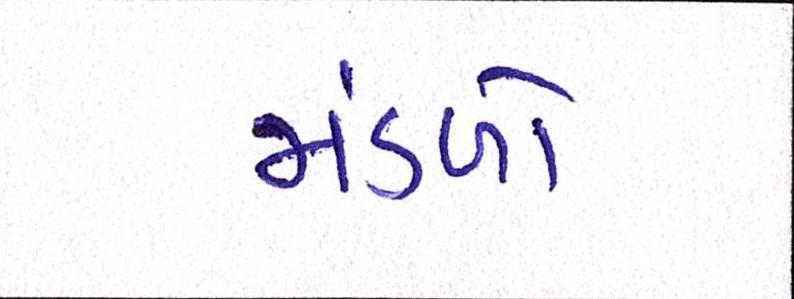 મંડળો